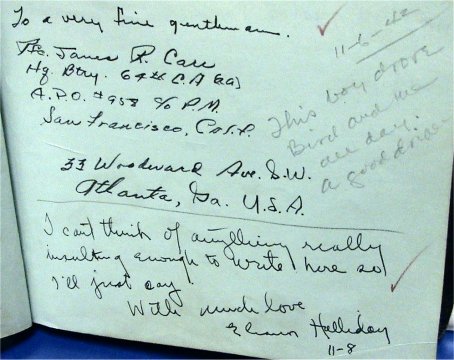 To a very fine gentleman.
Pfc. James R. Carr
Hq. Btry. 64th C.A. (AA)
A.P.O. #958 c/o P.M.
San Francisco, Calif.
33 Woodward Ave. S.W.
Atlanta, Ga. U.S.A.
11-6-42
This boy drove
Bird and me
all day.
a good driver
I can't think of anything really
insulting enough to write here so
I'll just say
With much love
Eleanor Halliday
11-8